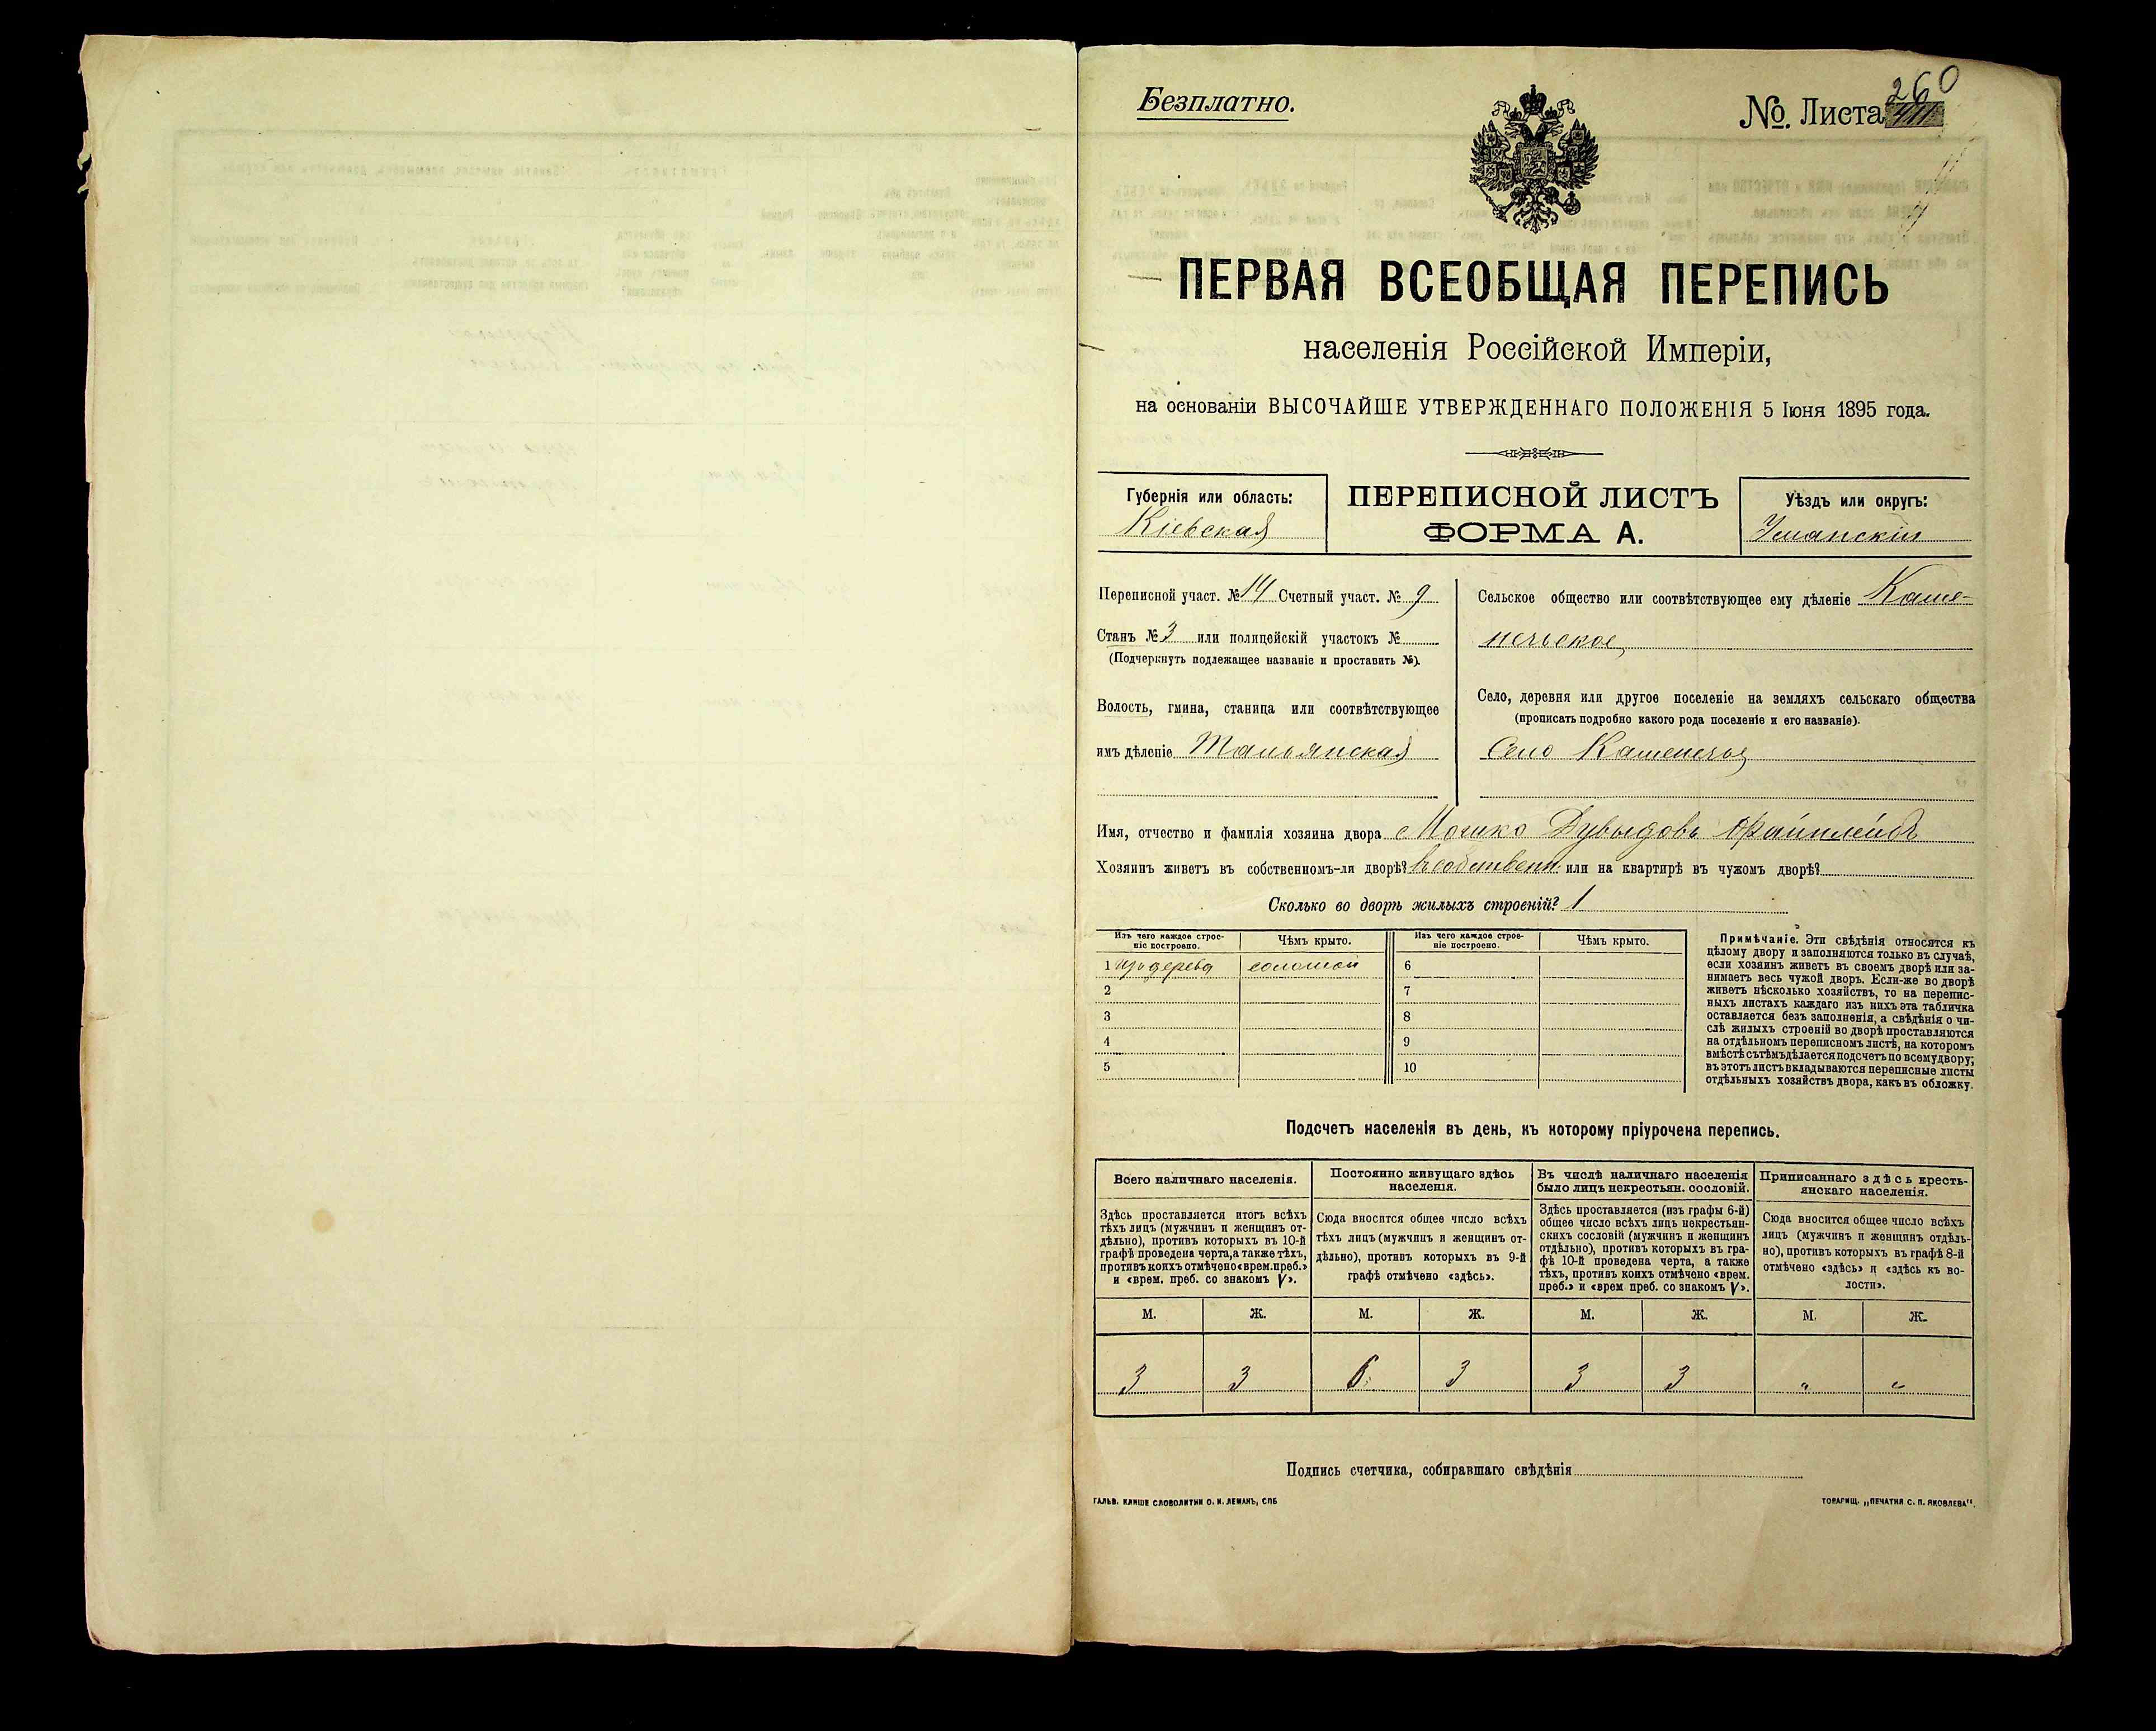 Безплатно.
№. Листа 260
ПЕРВАЯ ВСЕОБЩАЯ ПЕРЕПИСЬ
населенія Россійской Имперіи,
на основаніи ВЫСОЧАЙШЕ УТВЕРЖДЕННАГО ПОЛОЖЕНІЯ 5 Іюня 1895 года.
Губернія или область:
Кіевская
ПЕРЕПИСНОЙ ЛИСТЪ
ФОРМА А.
Уѣздъ или округъ:
Уманскій
Переписной участ. № 14 Счетный участ. № 9
Станъ № 3 или полицейскій участокъ №
(Подчеркнуть подлежащее названіе и проставить №).
Волость, гмина, станица или соотвѣтствующее
имъ дѣленіе Тальянская
Сельское общество или соотвѣтствующее ему дѣленіе Каме-
нечьское
Село, деревня или другое поселеніе на земляхъ сельскаго общества
(прописать подробно какого рода поселеніе и его названіе).
Село Каменечье
Имя, отчество и фамилія хозяина двора Мошко Дувыдовъ
Хозяинъ живетъ въ собственномъ-ли дворѣ? въ собственн. или на квартирѣ въ чужомъ дворѣ?
Сколько во дворѣ жилыхъ строеній? 1
Изъ чего каждое строе-
ніе построено.
Чѣмъ крыто.
Изъ чего каждое строе-
ніе построено.
Чѣмъ крыто.
1 изъ дерева соломой 6
2 7
3 8
4 9
5 10
Примѣчаніе. Эти свѣдѣнія относятся къ
цѣлому двору и заполняются только въ случаѣ,
если хозяинъ живетъ въ своемъ дворѣ или за-
нимаетъ весь чужой дворъ. Если-же во дворѣ
живетъ нѣсколько хозяйствъ, то на перепис-
ныхъ листахъ каждаго изъ нихъ эта табличка
оставляется безъ заполненія, а свѣдѣнія о чи-
слѣ жилыхъ строеній во дворѣ проставляются
на отдѣльномъ переписномъ листѣ, на которомъ
вмѣстѣ съ тѣмъ дѣлается подсчетъ по всему двору;
въ этотъ листъ вкладываются переписные листы
отдѣльныхъ хозяйствъ двора, какъ въ обложку.
Подсчетъ населенія въ день, къ которому пріурочена перепись.
Всего наличнаго населенія.
Здѣсь проставляется итогъ всѣхъ
тѣхъ лицъ (мужчинъ и женщинъ от-
дѣльно), противъ которыхъ въ 10-й
графѣ проведена черта, а также тѣхъ,
противъ коихъ отмѣчено «врем. преб.»
и «врем. преб. со знакомъ V».
Постоянно живущаго здѣсь
населенія.
Сюда вносится общее число всѣхъ
тѣхъ лицъ (мужчинъ и женщинъ от-
дѣльно), противъ которыхъ въ 9-й
графѣ отмѣчено «здѣсь».
Въ числѣ наличнаго населенія
было лицъ некрестьян. сословій.
Здѣсь проставляется (изъ графы 6-й)
общее число всѣхъ лицъ некрестьян-
скихъ сословій (мужчинъ и женщинъ
отдѣльно), противъ которыхъ въ гра-
фѣ 10-й проведена черта, а также
тѣхъ, противъ коихъ отмѣчено «врем.
преб.» и «врем преб. со знакомъ V».
Приписаннаго здѣсь кресть-
янскаго населенія.
Сюда вносится общее число всѣхъ
лицъ (мужчинъ и женщинъ отдѣль-
но), противъ которыхъ въ графѣ 8-й
отмѣчено «здѣсь» и «здѣсь къ во-
лости».
М. Ж. М. Ж. М. Ж. М. Ж.
3 3 6 3 3 3 " "
Подпись счетчика, собиравшаго свѣдѣнія
ГАЛЬВ. КЛИШЕ СЛОВОЛИТНИ О. И. ЛЕМАНЪ, СПБ
ТОВАРИЩ. „ПЕЧАТНЯ С. П. ЯКОВЛЕВА".